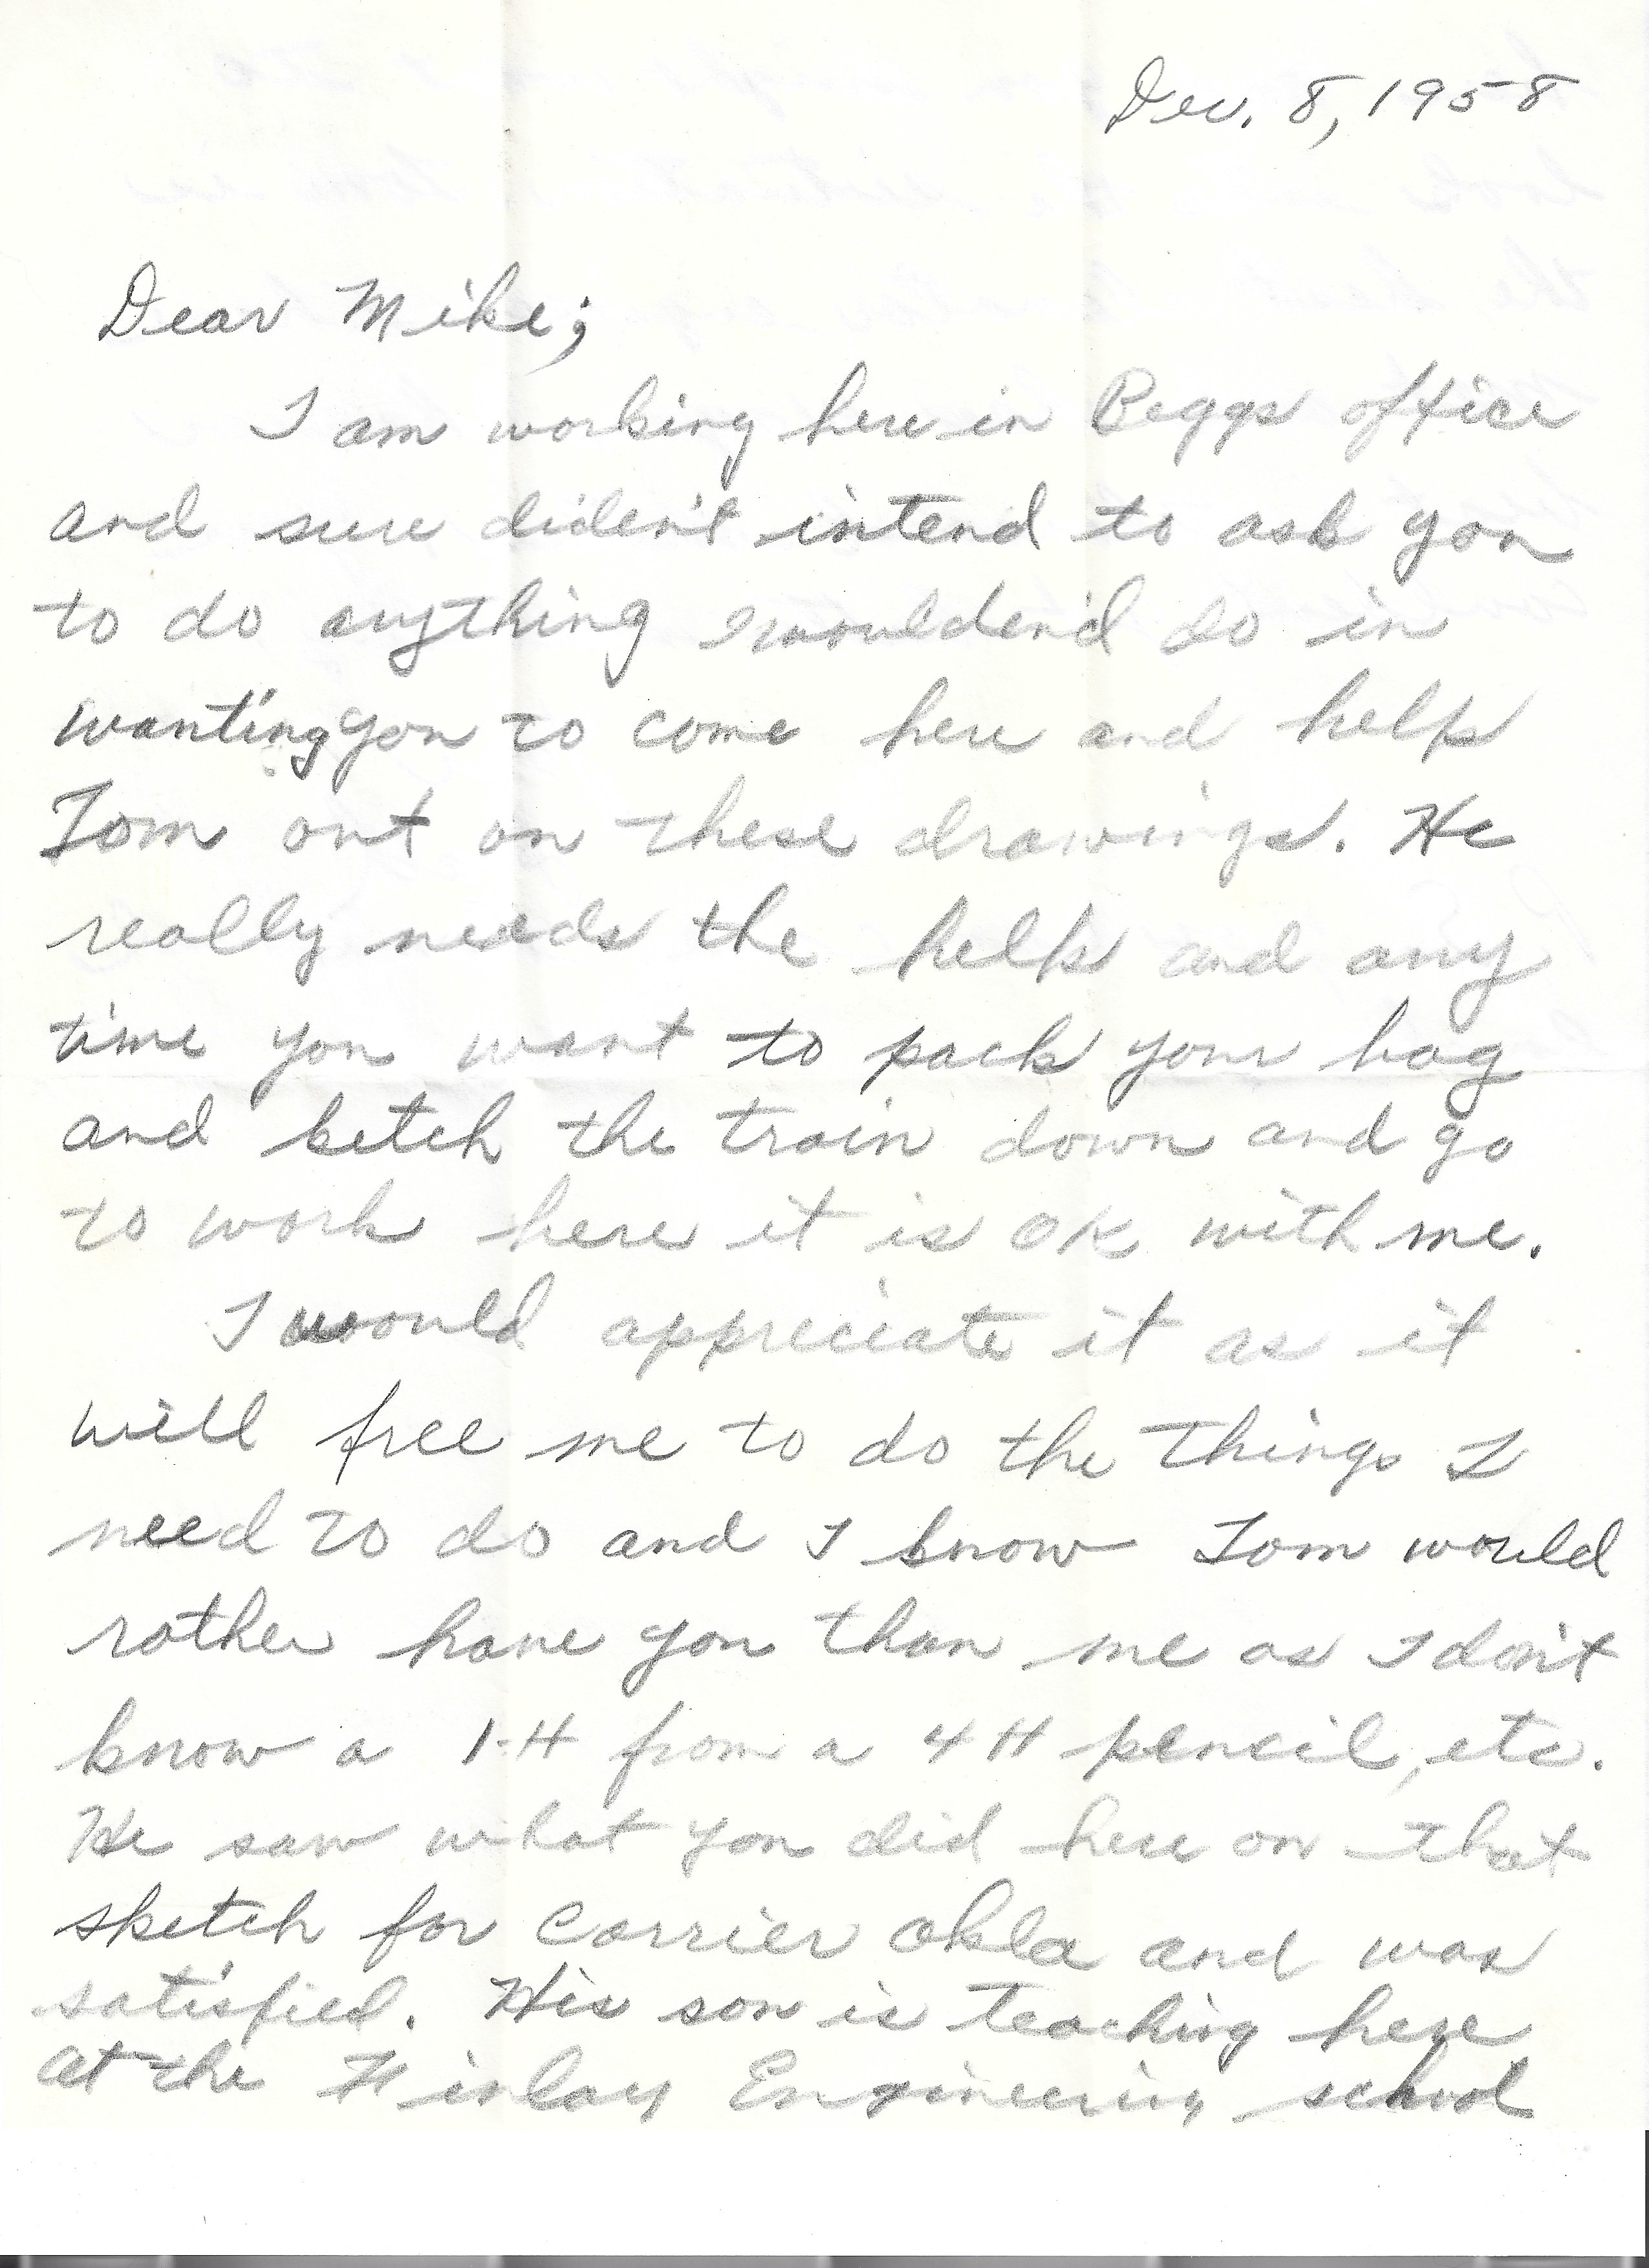 Dec. 8, 1958
Dear Mike;
I am working here in Beggs office
and sure diden't intend to ask you
to do anything I woulden'd do in
wanting you to come here and help
Tom out on these drawings. He
really needs the help and any
time you want to pack your bag
and ketch the train down and go
to work here it is OK with me.
I would appreciate it as it
will free me to do the things I
need to do and I know Tom would
rather have you than me as I don't
know a 1-H from a 4H pencil, etc.
He saw what you did here on that
sketch for Carrier Okla and was
satisfied. His son is teaching here
at the Finlay Engineering school